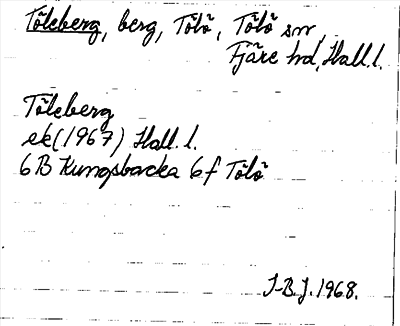 Töleberg, berg, Tölö, Tölö sn,
Fjäre hd, Hall. l.
Töleberg
ek (1967) Hall. l.
6B Kungsbacka 6f Tölö
I-B.J. 1968.